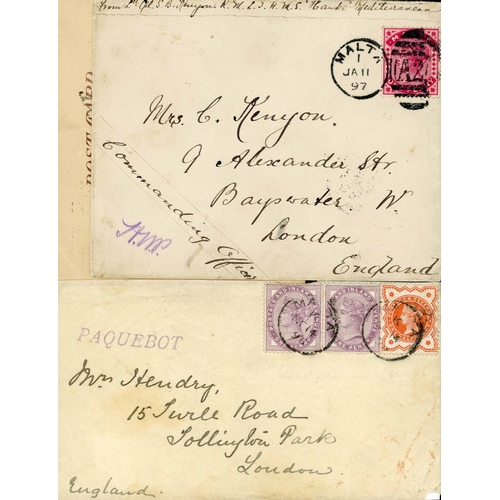 from L. Cpl. S. B. Kenyon R.M.L.I. H.M.S. "Hawke" Mediterranean
MALTA
1
JA 11
97
A25
POST CARD
Mrs. C. Kenyon.
9 Alexander Str.
Bayswater. W.
London
England
Commanding Officer
PAQUEBOT
POSTAGE AND INLAND
Mrs Hendry,
15 Turle Road
Tollington Park
London.
England.